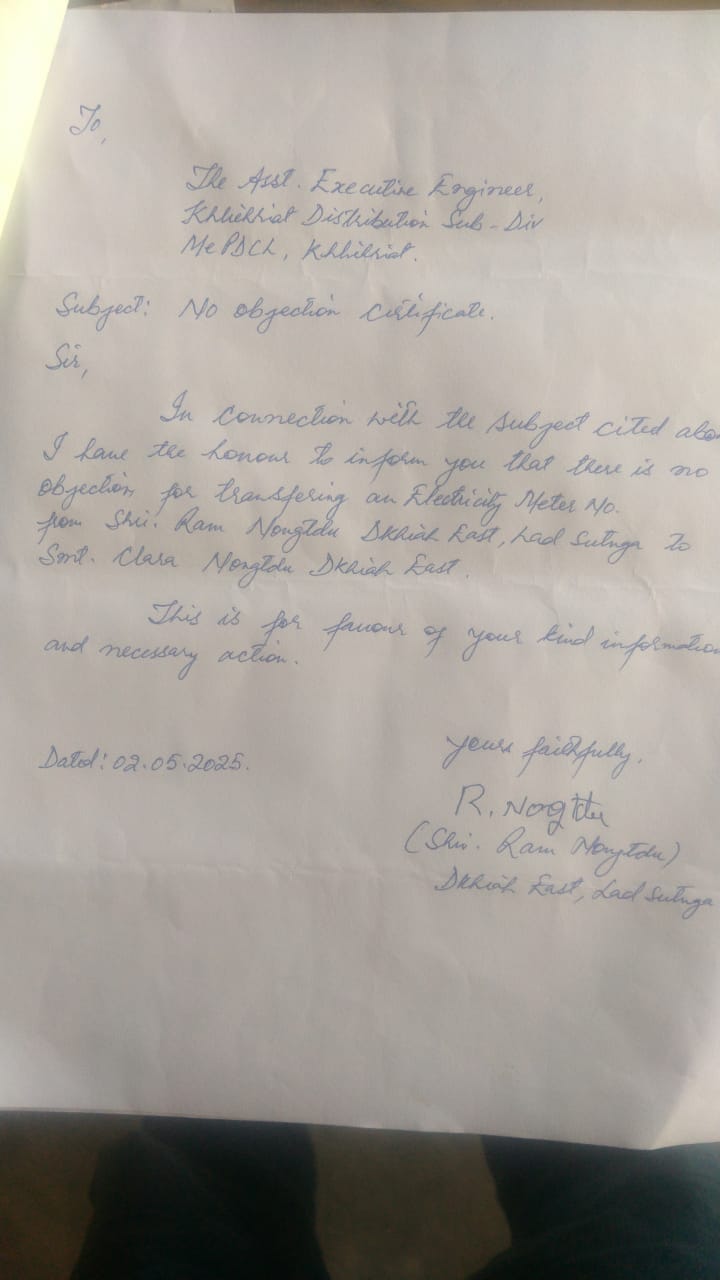 To,
The Asst. Executive Engineer,
Khliehriat Distribution Sub-Div
MePDCL, Khliehriat.
Subject: No objection certificate.
Sir,
In connection with the subject cited abov
I have the honour to inform you that there is no
objection for transfering an Electricity Meter No.
from Shri. Ram Nongtdu Dkhiah East, Lad Sutnga to
Smt. Clara Nongtdu Dkhiah East.
This is for favour of your kind information
and necessary action.
Dated: 02.05.2025.
Yours faithfully,
R. Nongtdu
(Shri. Ram Nongtdu)
Dkhiah East, Lad Sutnga